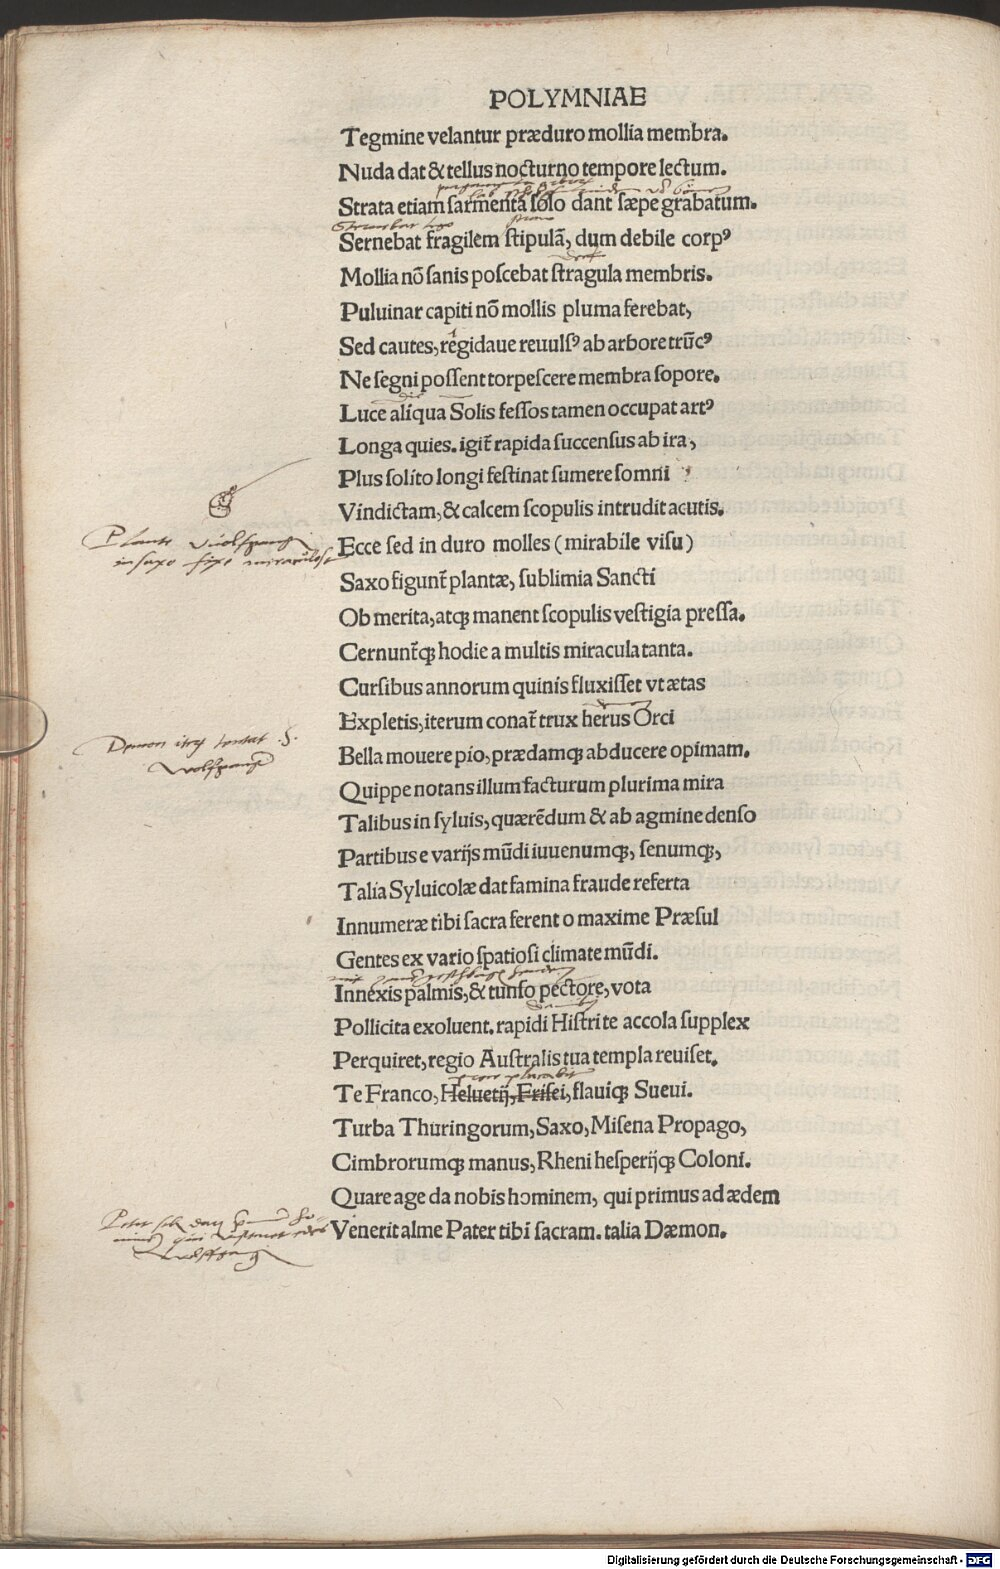 POLYMNIAE
Tegmine velantur præduro mollia membra.
Nuda dat & tellus nocturno tempore lectum.
Strata etiam sarmenta solo dant sæpe grabatum.
Sternebat ergo
Sernebat fragilem stipulã, dum debile corpꝰ
Mollia nõ sanis poscebat stragula membris.
Puluinar capiti nõ mollis pluma ferebat,
Sed cautes, regidaue reuulsꝰ ab arbore trũcꝰ
Ne segni possent torpescere membra sopore.
Luce aliqua Solis fessos tamen occupat artꝰ
Longa quies. igit̃ rapida succensus ab ira,
Plus solito longi festinat sumere somni
Vindictam, & calcem scopulis intrudit acutis.
Plante Wolfgangi
in saxo fixe miraculose
Ecce sed in duro molles (mirabile visu)
Saxo figunt̃ plantæ, sublimia Sancti
Ob merita, atqꝫ manent scopulis vestigia pressa.
Cernunt̃qꝫ hodie a multis miracula tanta.
Cursibus annorum quinis fluxisset vt ætas
Expletis, iterum conat̃ trux herus Orci
Demon iteꝫ tentat .S.
Wolfgangũ
Bella mouere pio, prædamqꝫ abducere opimam.
Quippe notans illum facturum plurima mira
Talibus in syluis, quærẽdum & ab agmine denso
Partibus e varijs mũdi iuuenumqꝫ, senumqꝫ,
Talia Syluicolæ dat famina fraude referta
Innumeræ tibi sacra ferent o maxime Præsul
Gentes ex vario spatiosi climate mũdi.
Innexis palmis, & tunso pectore, vota
Pollicita exoluent. rapidi Histri te accola supplex
Perquiret, regio Australis tua templa reuiset.
Te Franco, Heluetij, Frisei, flauiqꝫ Sueui.
Turba Thuringorum, Saxo, Misena Propago,
Cimbrorumqꝫ manus, Rheni hesperijqꝫ Coloni.
Quare age da nobis hominem, qui primus ad ædem
Venerit alme Pater tibi sacram. talia Dæmon.
Digitalisierung gefördert durch die Deutsche Forschungsgemeinschaft - DFG